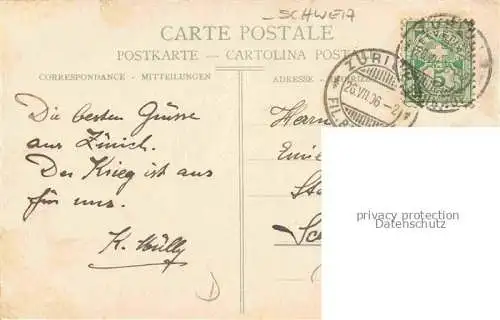 SCHWEIZ
CARTE POSTALE
POSTKARTE – CARTOLINA POSTA
CORRESPONDANCE - MITTEILUNGEN
ADRESSE -
ZÜRICH
26.VII.06
HELVETIA
5
Die besten Grüsse
aus Zürich.
Der Krieg ist aus
für uns.
K.
Herrn
privacy protection
DATENSCHUTZ
D